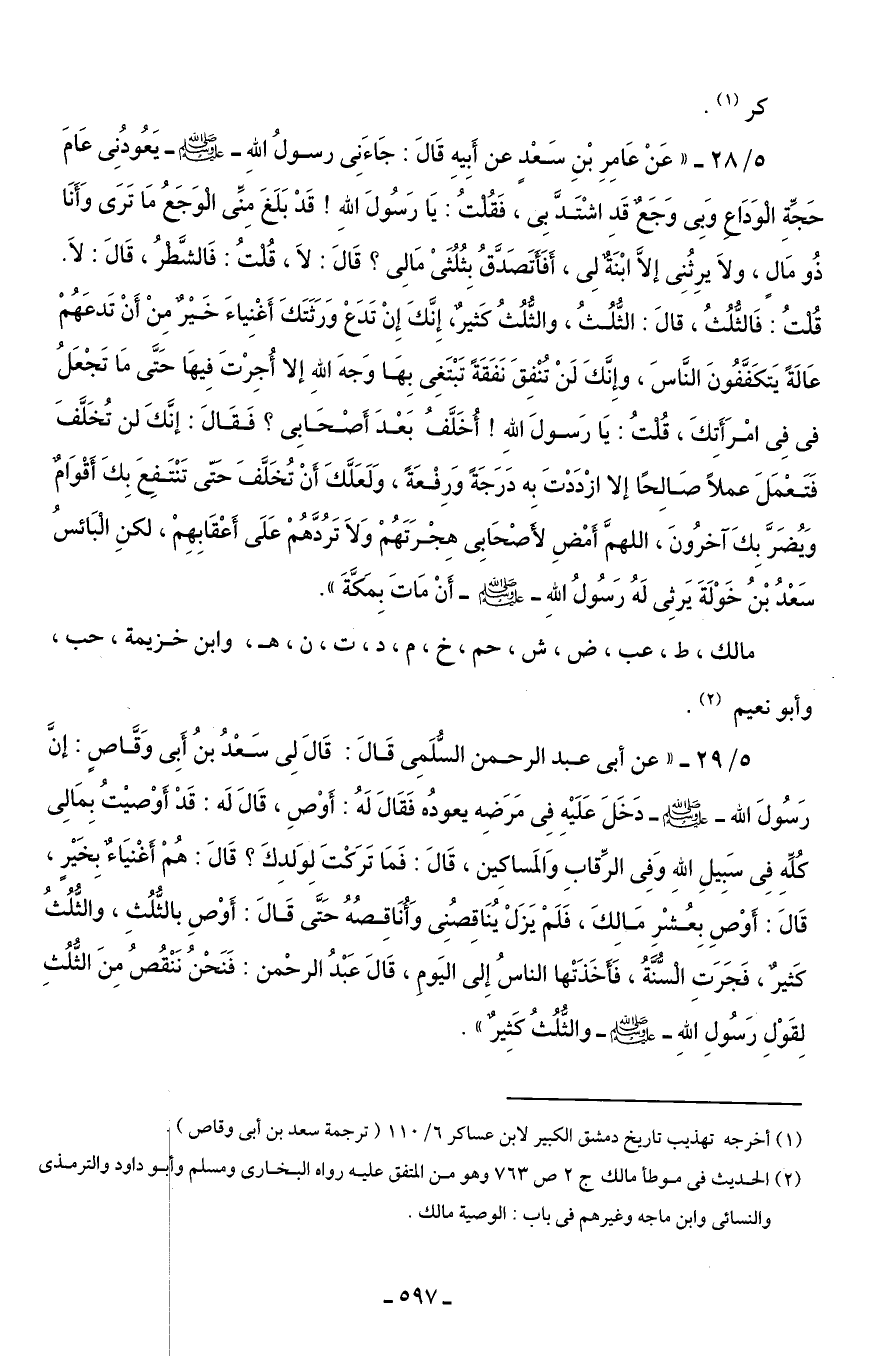 كر (١) .
٢٨/٥ ـ « عَنْ عامرِ بْنِ سَعْدٍ عن أَبيه قَالَ : جَاءَنِى رسولُ اللهِ ـ ﷺ ـ يَعُودُنِى عَامَ
حَجَّةِ الْوَدَاعِ وَبِى وَجَعٌ قَد اشْتَدَّ بِى ، فَقُلْتُ : يَا رَسُولَ الله ! قَدْ بَلَغَ مِنِّى الْوَجَعُ مَا تَرَى وَأَنَا
ذُو مَالٍ ، ولاَ يرِثُنِى إلاَّ ابْنَةٌ لِى ، أَفَأَتَصَدَّقُ بِثُلُثَىْ مَالِى ؟ قَالَ : لاَ ، قُلْتُ : فَالشَّطْرُ ، قَالَ : لاَ.
قُلْتُ : فَالثُّلُثُ ، قالَ : الثُّلُثُ ، والثُّلُثُ كَثيرٌ، إنَّكَ إنْ تَدَعْ وَرَثَتَكَ أَغْنِياءَ خَيْرٌ مِنْ أَنْ تَدعَهُمْ
عَالَةً يَتكَفَّفُونَ النَّاسَ ، وإنَّكَ لَنْ تُنْفِقَ نَفَقَةً تَبْتَغِى بِهَا وَجهَ اللهِ إلا أُجِرْتَ فِيهَا حَتَّى مَا تَجْعَلُ
فِى فِى امْرَأَتِكَ ، قُلْتُ : يَا رَسولَ اللهِ ! أُخَلَّفُ بَعْدَ أَصْحَابِى ؟ فَقَالَ : إنَّكَ لن تُخَلَّفَ
فَتَعْمَلَ عملاً صَالِحًا إلا ازْدَدْتَ بِه دَرَجَةً وَرِفْعةً ، ولَعَلَّكَ أَنْ تُخَلَّفَ حَتَّى تَنْتَفِعَ بِكَ أَقْوَامٌ
وَيُضَرَّ بِكَ آخرُونَ ، اللهمَّ أَمْضِ لأَصْحَابِى هِجْرَتَهُمْ وَلاَ تَرُدَّهُمْ عَلَى أَعْقَابِهِمْ ، لكنِ الْبَائسُ
سَعْدُ بْنُ خَوْلَةَ يَرثِى لَهُ رَسُولُ اللهِ ـ ﷺ ـ أَنْ مَاتَ بِمَكَّةَ ».
مالك ، ط ، عب ، ض ، ش ، حم ، خ ، م ، د ، ت ، ن ، هـ ، وابن خزيمة ، حب ،
وأبو نعيم (٢) .
٢٩/٥ ـ « عن أبى عبد الرحمن السُّلَمِى قَالَ : قَالَ لِى سَعْدُ بنُ أَبِى وَقَّاصٍ : إنَّ
رَسُولَ اللهِ ـ ﷺ ـ دَخَلَ عَلَيْهِ فِى مَرَضِه يعودُه فَقَالَ لَهُ : أَوْصِ ، قَالَ لَه : قَدْ أَوْصَيْتُ بِمَالِى
كُلِّهِ فِى سَبِيلِ اللهِ وَفِى الرِّقَابِ وَالمَساكين ، قَالَ : فَمَا تَرَكْتَ لِوَلدِكَ ؟ قَالَ : هُمْ أَغْنِيَاءُ بِخَيْرٍ ،
قَالَ : أَوْصِ بِعُشْرِ مَالِكَ ، فَلَمْ يَزَلْ يُنَاقِصُنِى وَأُنَاقِصُهُ حَتَّى قَالَ : أَوْصِ بِالثُّلُثِ ، والثُّلُثُ
كَثيرٌ ، فَجَرَتِ الْسُّنَّةُ ، فَأَخَذَتْها الناسُ إلى اليَومِ ، قَالَ عَبْدُ الرحْمن : فَنَحْنُ نَنْقُصُ مِنَ الثُّلُثِ
لِقَوْلِ رَسُولِ اللهِ ـ ﷺ ـ والثُّلُثُ كَثِيرٌ » .
(١) أخرجه تهذيب تاريخ دمشق الكبير لابن عساكر ٦/ ١١٠ ( ترجمة سعد بن أبى وقاص ) .
(٢) الحديث فى موطأ مالك ج ٢ ص ٧٦٣ وهو من المتفق عليه رواه البخارى ومسلم وأبو داود والترمذى
والنسائى وابن ماجه وغيرهم فى باب : الوصية مالك .
ـ ٥٩٧ ـ